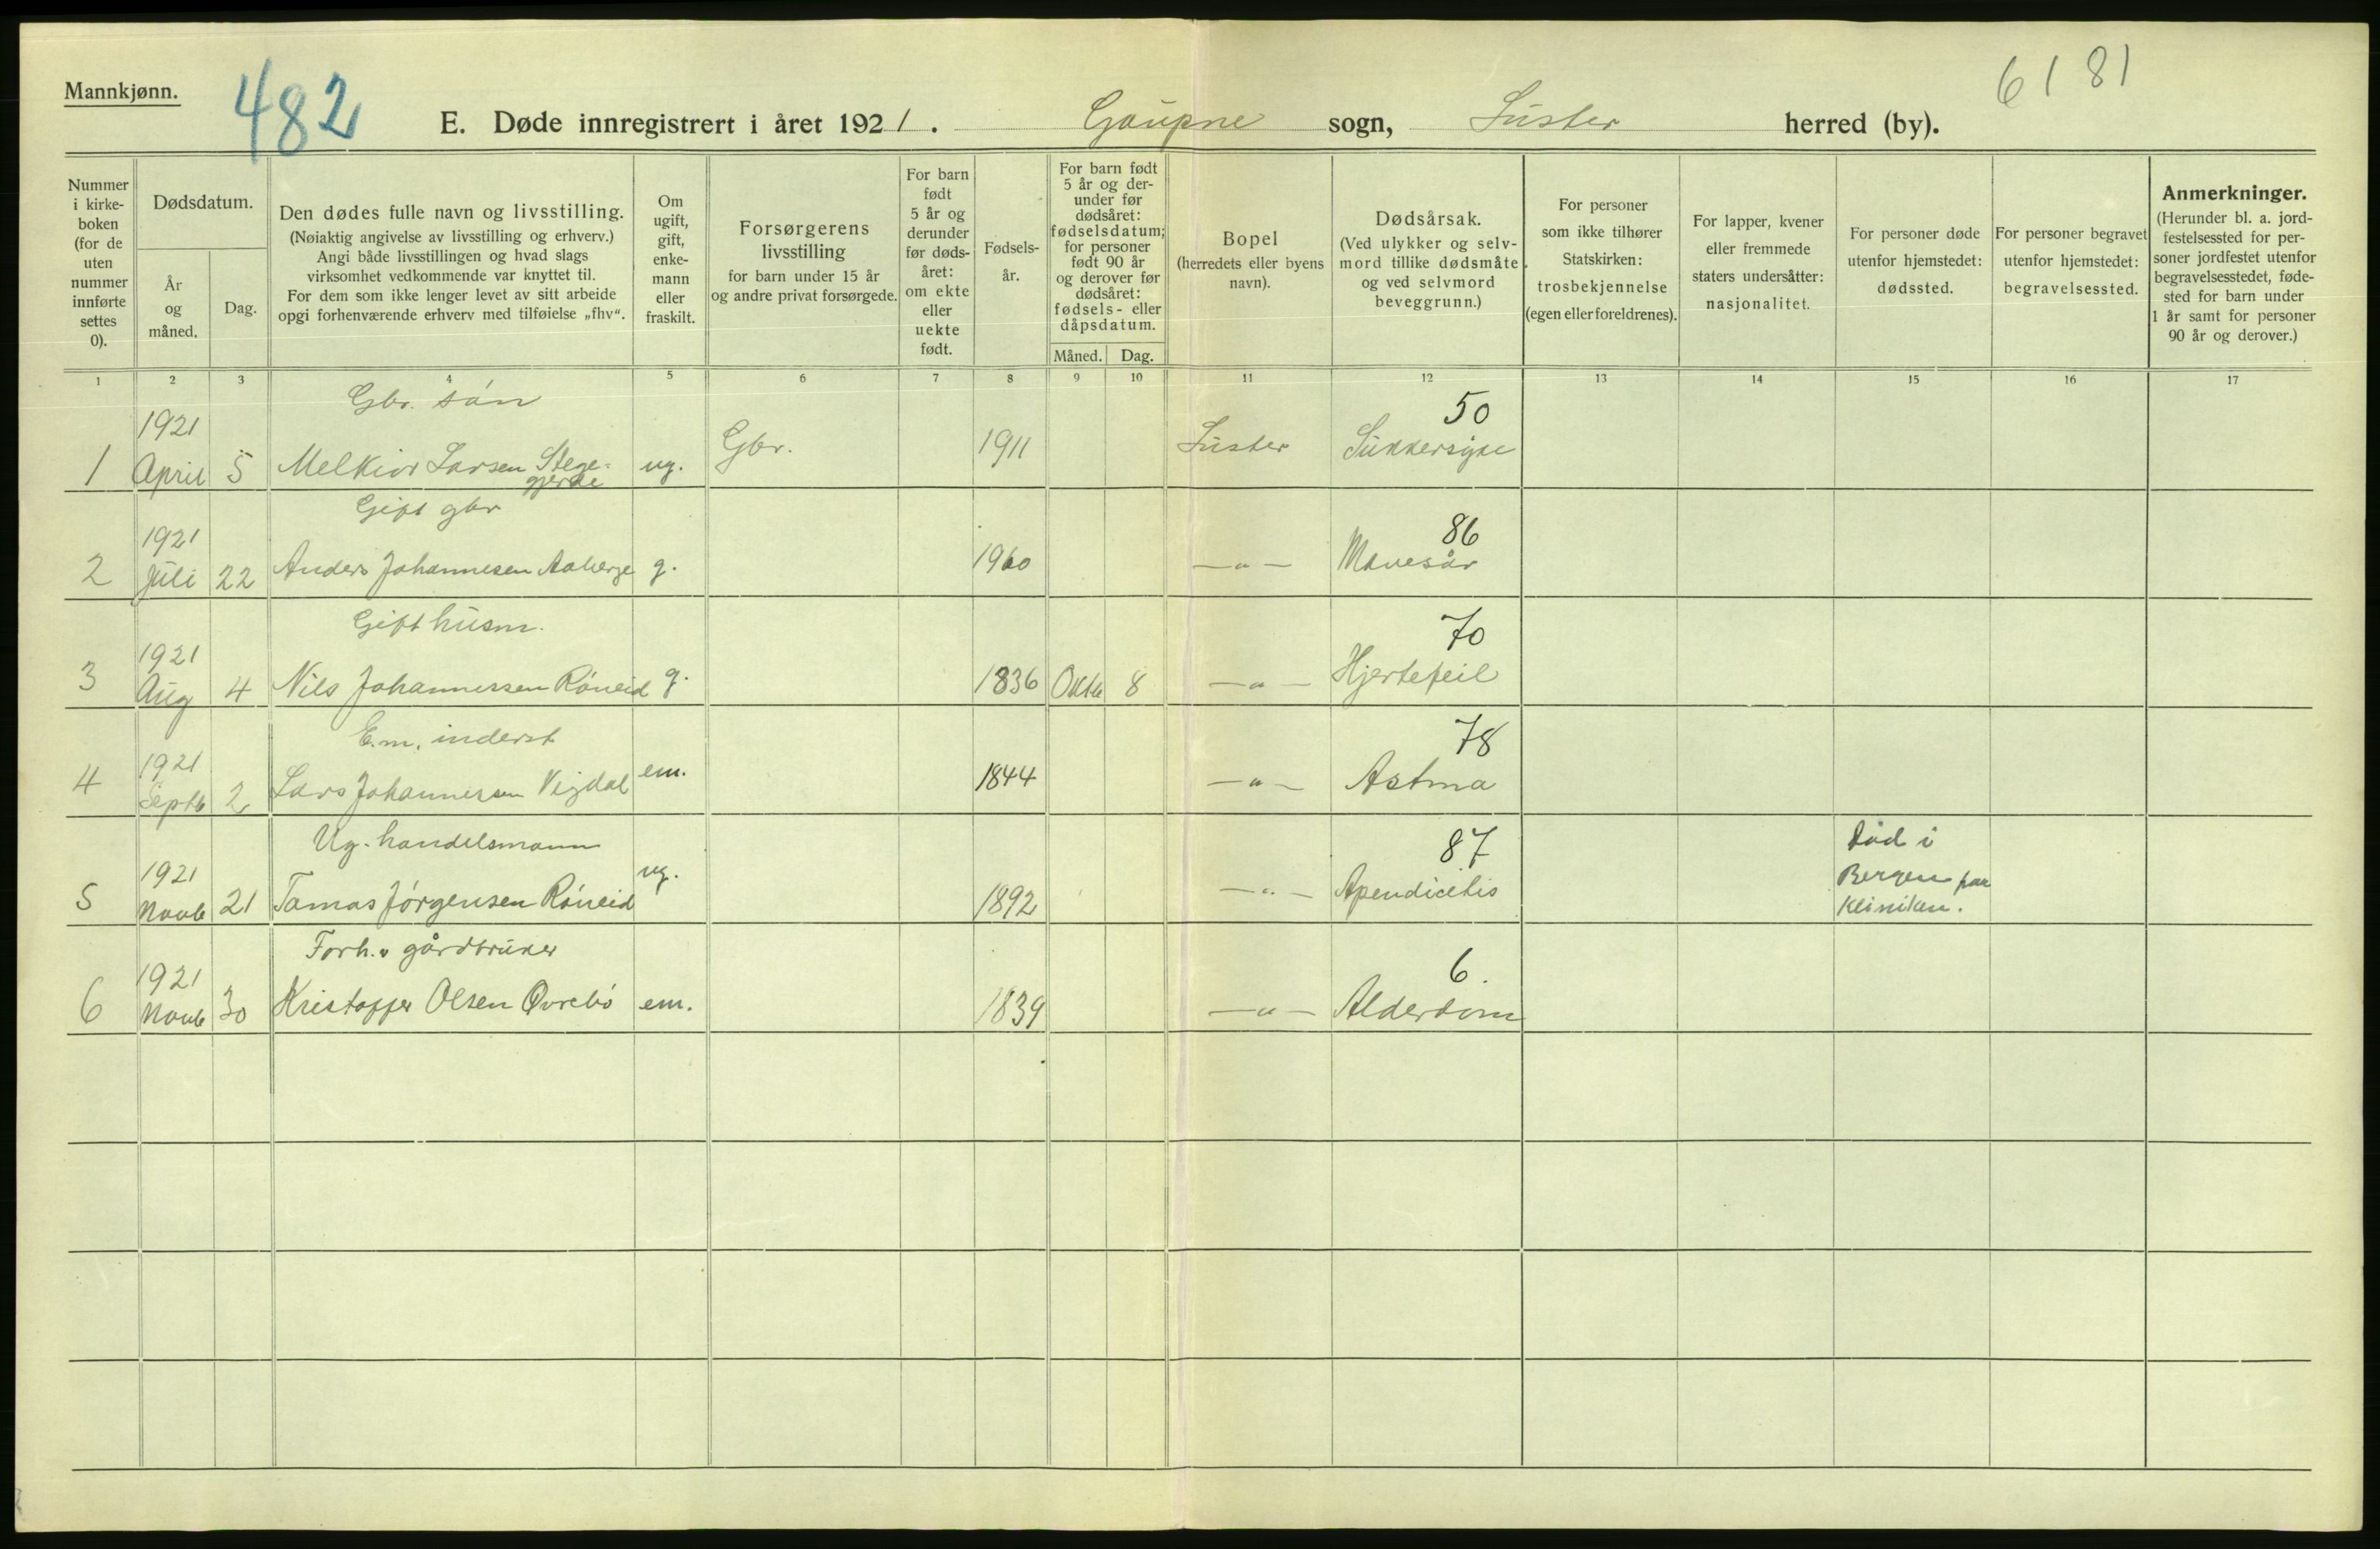 Mannkjønn.
482
6181
E. Døde innregistrert i året 1921. Gaupne sogn, Luster herred (by).
Nummer i kirke-boken (for de uten nummer innførte settes 0).
Dødsdatum.
År og måned.
Dag.
Den dødes fulle navn og livsstilling.
(Nøiaktig angivelse av livsstilling og erhverv.)
Angi både livsstillingen og hvad slags
virksomhet vedkommende var knyttet til.
For dem som ikke lenger levet av sitt arbeide
opgi forhenværende erhverv med tilføielse „fhv“.
Om ugift, gift, enke-mann eller fraskilt.
Forsørgerens
livsstilling
for barn under 15 år
og andre privat forsørgede.
For barn født 5 år og derunder før døds-året: om ekte eller uekte født.
Fødsels-år.
For barn født 5 år og der-under før dødsåret: fødselsdatum; for personer født 90 år og derover før dødsåret: fødsels- eller dåpsdatum.
Måned. Dag.
Bopel
(herredets eller byens
navn).
Dødsårsak.
(Ved ulykker og selv-
mord tillike dødsmåte,
og ved selvmord
beveggrunn.)
For personer
som ikke tilhører
Statskirken:
trosbekjennelse
(egen eller foreldrenes).
For lapper, kvener
eller fremmede
staters undersåtter:
nasjonalitet.
For personer døde
utenfor hjemstedet:
dødssted.
For personer begravet
utenfor hjemstedet:
begravelsessted.
Anmerkninger.
(Herunder bl. a. jord-
festelsessted for per-
soner jordfestet utenfor
begravelsesstedet, føde-
sted for barn under
1 år samt for personer
90 år og derover.)
1 2 3 4 5 6 7 8 9 10 11 12 13 14 15 16 17
Gbr. són
50
1 1921 April 5 Melkior Larsen Stege-gjerde ug. Gbr. 1911 Luster Sukkersyke
Gift gbr
86
2 1921 Juli 22 Anders Johannesen Aaberge g. 1960 —„— Mavesår
Gift husm.
70
3 1921 Aug 4 Nils Johannessen Róneid g. 1836 Oktb 8 —„— Hjertefeil
E.m. inderst
78
4 1921 Septb 2 Lars Johannessen Vigdal em. 1844 —„— Astma
Ug. handelsmann
87
5 1921 Novb 21 Tamas Jórgensen Róneid ug. 1892 —„— Apendicetis Död i Bergen paa Kliniken.
Forh.v gårdbruker
6.
6 1921 Novb 30 Kristoffer Olsen Øvrebó em. 1839 —„— Alderdom